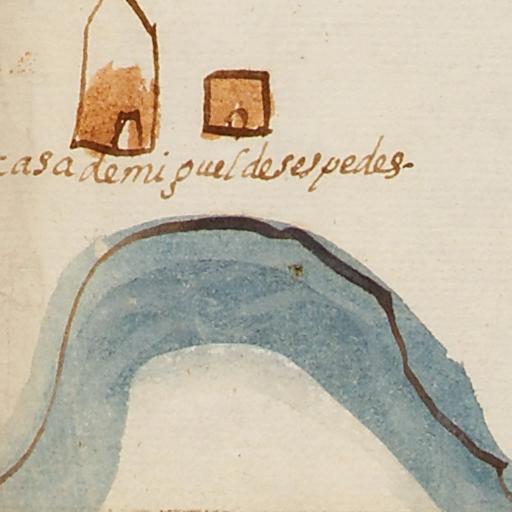 casa de miguel de sespedes.